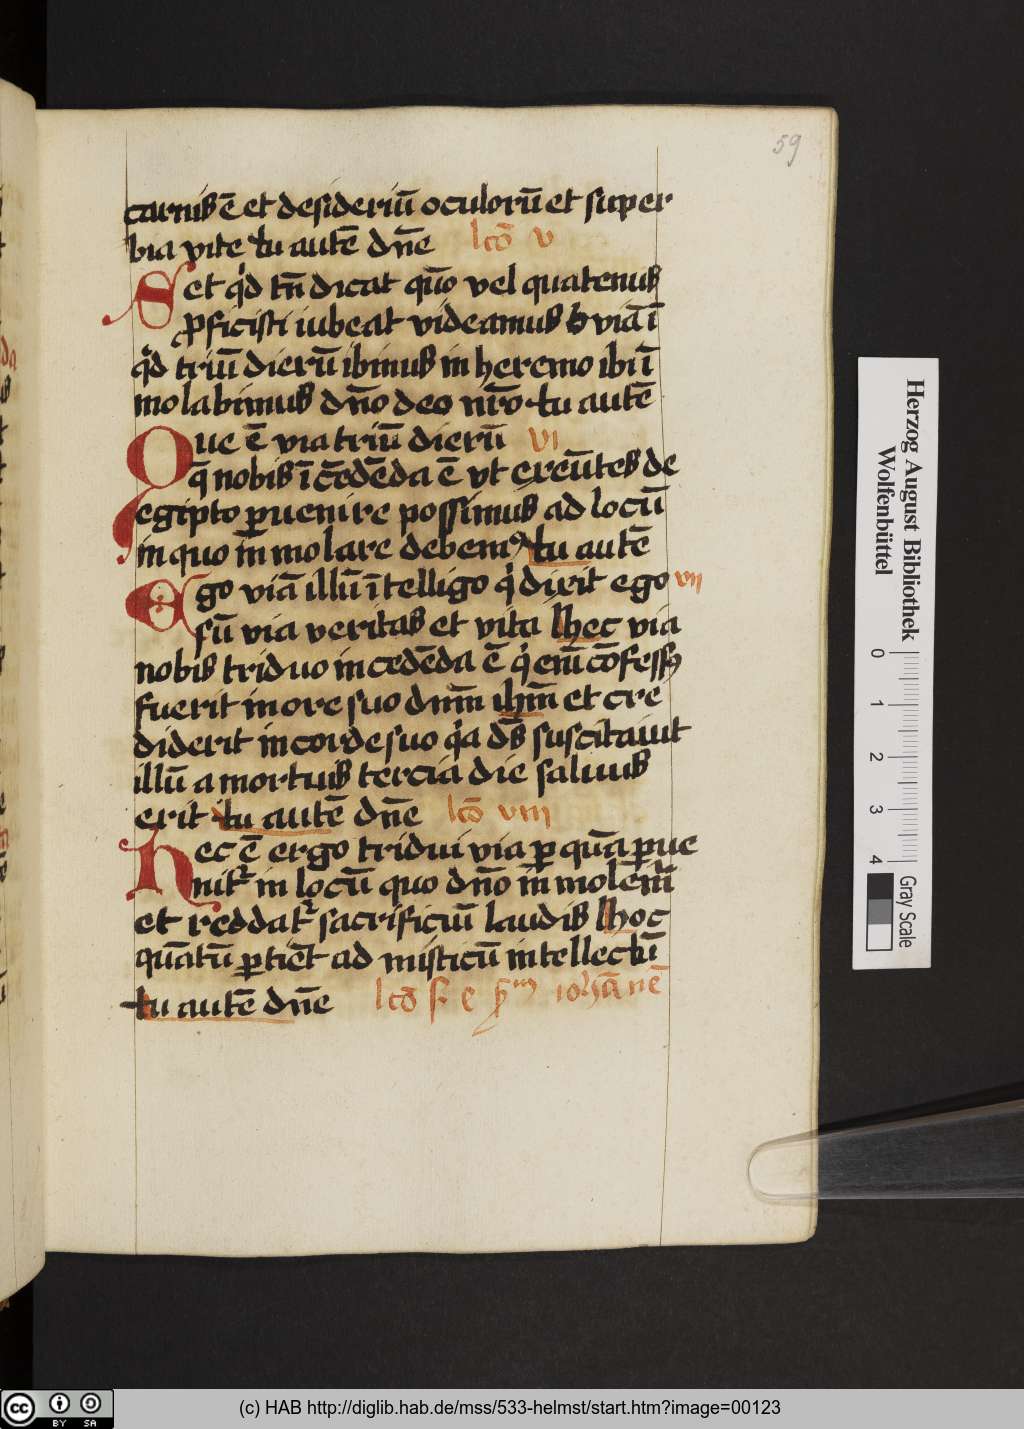 59
carnis ē et desideriū oculorū et super
bia vite tu autē dn̄e lcō v
Set qͥd tn̄ dicat quō vel quatenus
ꝓficisti iubeat videamus viā ī
qͥd triū dierū ibimus in heremo ibi ī
molabimus dn̄o deo nr̄o tu autē
Que ē via triū dierū vi
q̄ nobis īcēdēda ē vt exeūtes de
egipto ꝑuenire possimus ad locū
in quo im̄molare debemꝰ tu autē
Ego viā illū ītelligo qͥ dixit ego vii
sū via veritas et vita hec via
nobis triduo incedēda ē qͥ eni̅ cōfessꝰ
fuerit in ore suo dnm̄ ihm̄ et cre
diderit in corde suo qͥa ds̄ suscitauit
illū a mortuis tercia die saluus
erit tu autē dn̄e lcō viii
Hec ē ergo tridui via ꝑ quā ꝑue
nitᷣ in locū quo dn̄o im̄molem̄
et reddatᷣ sacrificiū laudis hoc
quātū ꝑtiēt ad misticū intellectū
tu autē dn̄e lcō iohānē
Herzog August Bibliothek
Wolfenbüttel
0 1 2 3 4
Gray Scale
BY SA
(c) HAB http://diglib.hab.de/mss/533-helmst/start.htm?image=00123